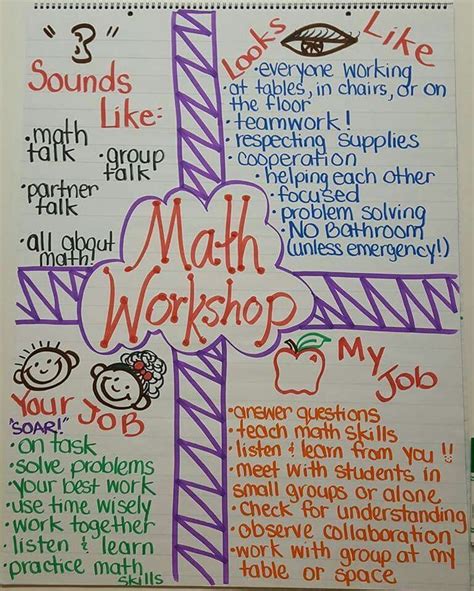 Sounds
Like:
• math
talk
• group
talk
• partner
talk
• all about
math!
Looks Like
• everyone working
at tables, in chairs, or on
the floor
• teamwork!
• respecting supplies
• cooperation
• helping each other
• focused
• problem solving
• NO Bathroom
(unless emergency!)
Math
Workshop
Your JOB
"SOAR!"
• on task
• solve problems
• your best work
• use time wisely
• work together
• listen & learn
• practice math
skills
My
Job
• answer questions
• teach math skills
• listen & learn from you!!
• meet with students in
small groups or alone
• check for understanding
• observe collaboration
• work with group at my
table or space